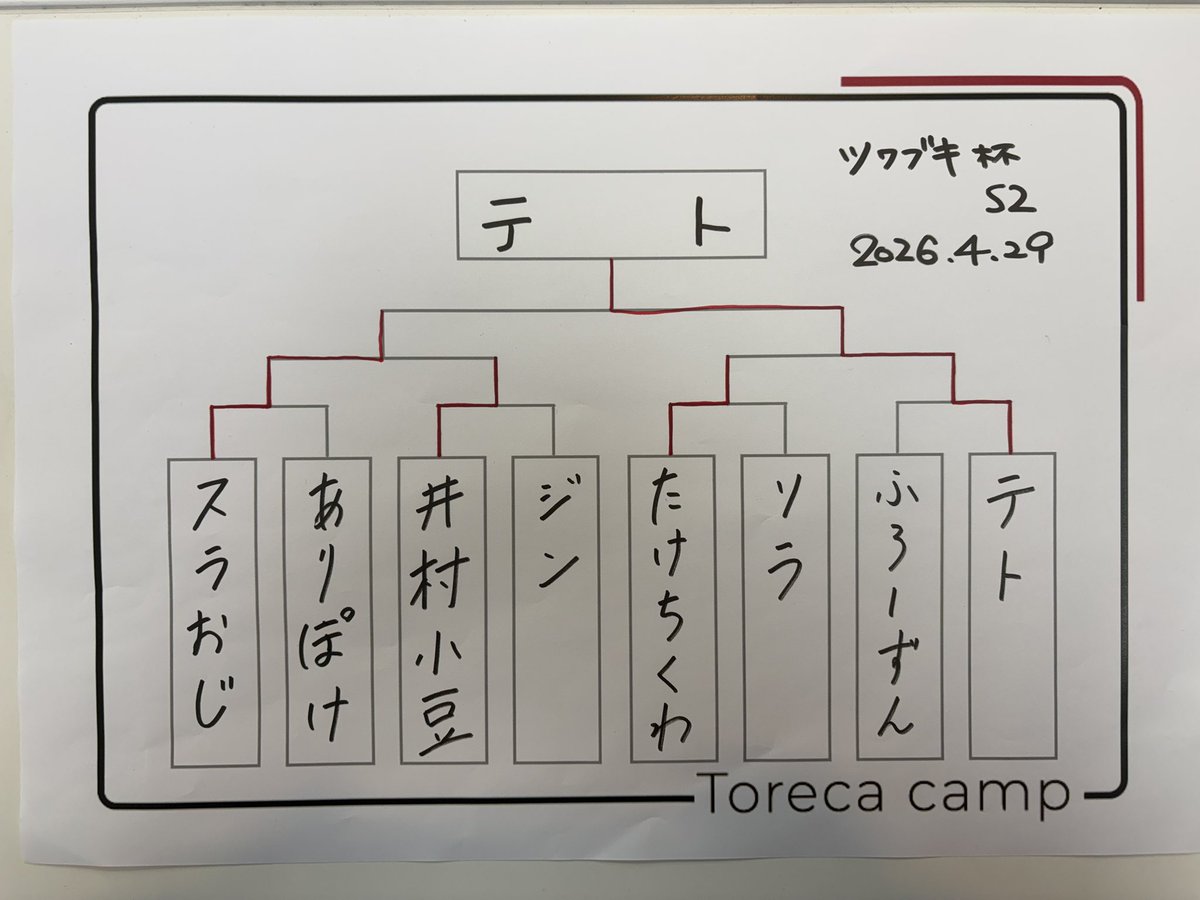 ツワブキ杯
S2
2026.4.29
テト
スラおじ
ありぽけ
井村小豆
ジン
たけちくわ
ソラ
ふろーずん
テト
Toreca camp